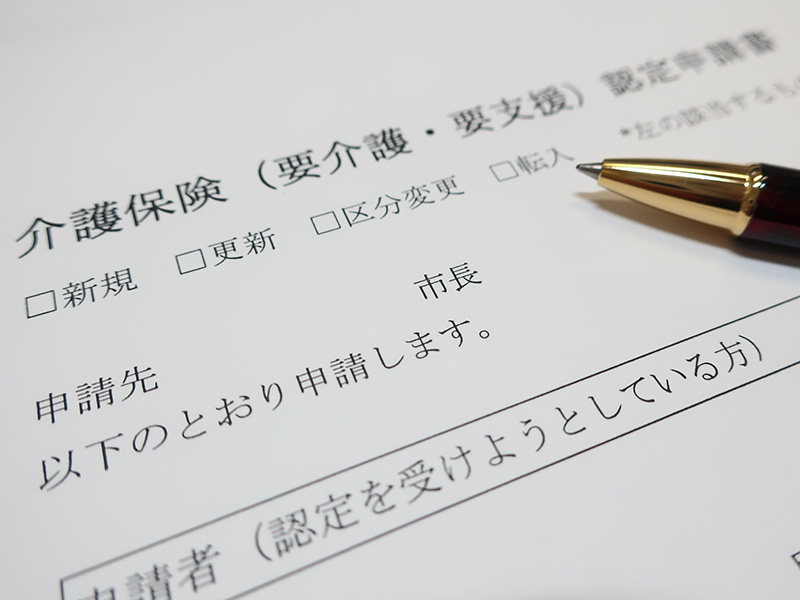 介護保険（要介護・要支援）認定申請書
□新規 □更新 □区分変更 □転入 *左の該当するもの
市長
申請先
以下のとおり申請します。
申請者（認定を受けようとしている方）